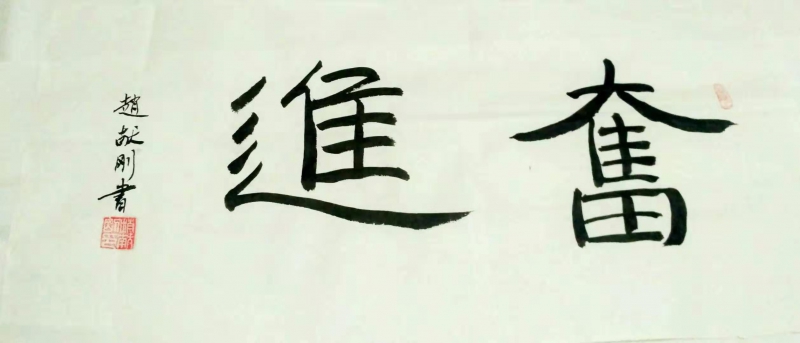 奮進
趙 刚書